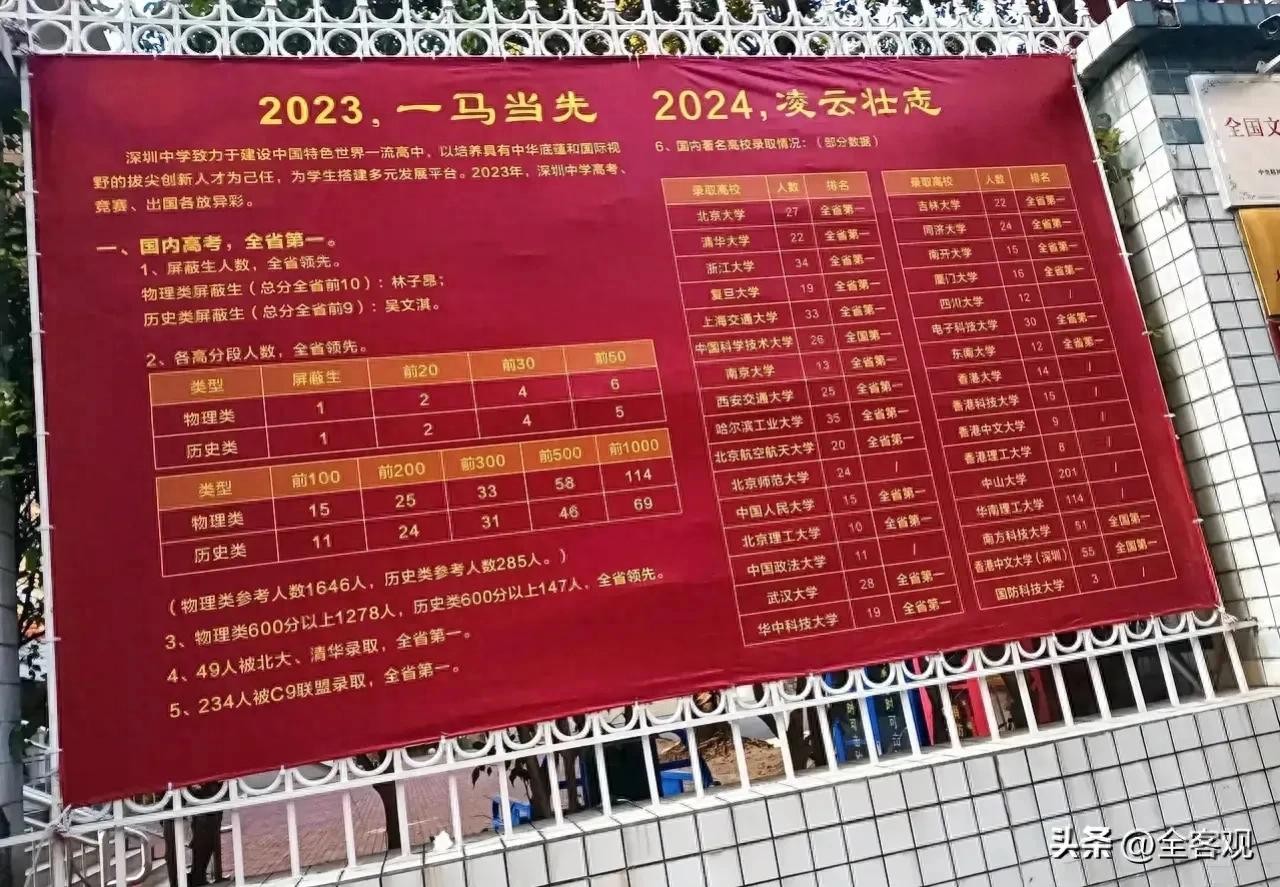 2023，一马当先 2024，凌云壮志
深圳中学致力于建设中国特色世界一流高中，以培养具有中华底蕴和国际视
野的拔尖创新人才为己任，为学生搭建多元发展平台。2023年，深圳中学高考、
竞赛、出国各放异彩。
一、国内高考，全省第一。
1、屏蔽生人数，全省领先。
物理类屏蔽生（总分全省前10）：林子昂；
历史类屏蔽生（总分全省前9）：吴文淇。
2、各高分段人数，全省领先。
类型 屏蔽生 前20 前30 前50
物理类 1 2 4 6
历史类 1 2 4 5
类型 前100 前200 前300 前500 前1000
物理类 15 25 33 58 114
历史类 11 24 31 46 69
（物理类参考人数1646人，历史类参考人数285人。）
3、物理类600分以上1278人，历史类600分以上147人，全省领先。
4、49人被北大、清华录取，全省第一。
5、234人被C9联盟录取，全省第一。
6、国内著名高校录取情况：（部分数据）
录取高校 人数 排名
北京大学 27 全省第一
清华大学 22 全省第一
浙江大学 34 全省第一
复旦大学 19 全省第一
上海交通大学 33 全省第一
中国科学技术大学 26 全国第一
南京大学 13 全省第一
西安交通大学 25 全省第一
哈尔滨工业大学 35 全省第一
北京航空航天大学 20 全省第一
北京师范大学 24 /
中国人民大学 15 全省第一
北京理工大学 10 全省第一
中国政法大学 11 /
武汉大学 28 全省第一
华中科技大学 19 全省第一
录取高校 人数 排名
吉林大学 22 全省第一
同济大学 24 全省第一
南开大学 15 全省第一
厦门大学 16 全省第一
四川大学 12 /
电子科技大学 30 全省第一
东南大学 12 全省第一
香港大学 14 /
香港科技大学 15 /
香港中文大学 9 /
香港理工大学 8 /
中山大学 201 /
华南理工大学 114 /
南方科技大学 51 全国第一
香港中文大学（深圳） 55 全国第一
国防科技大学 3 /
全国文
头条 @全客观